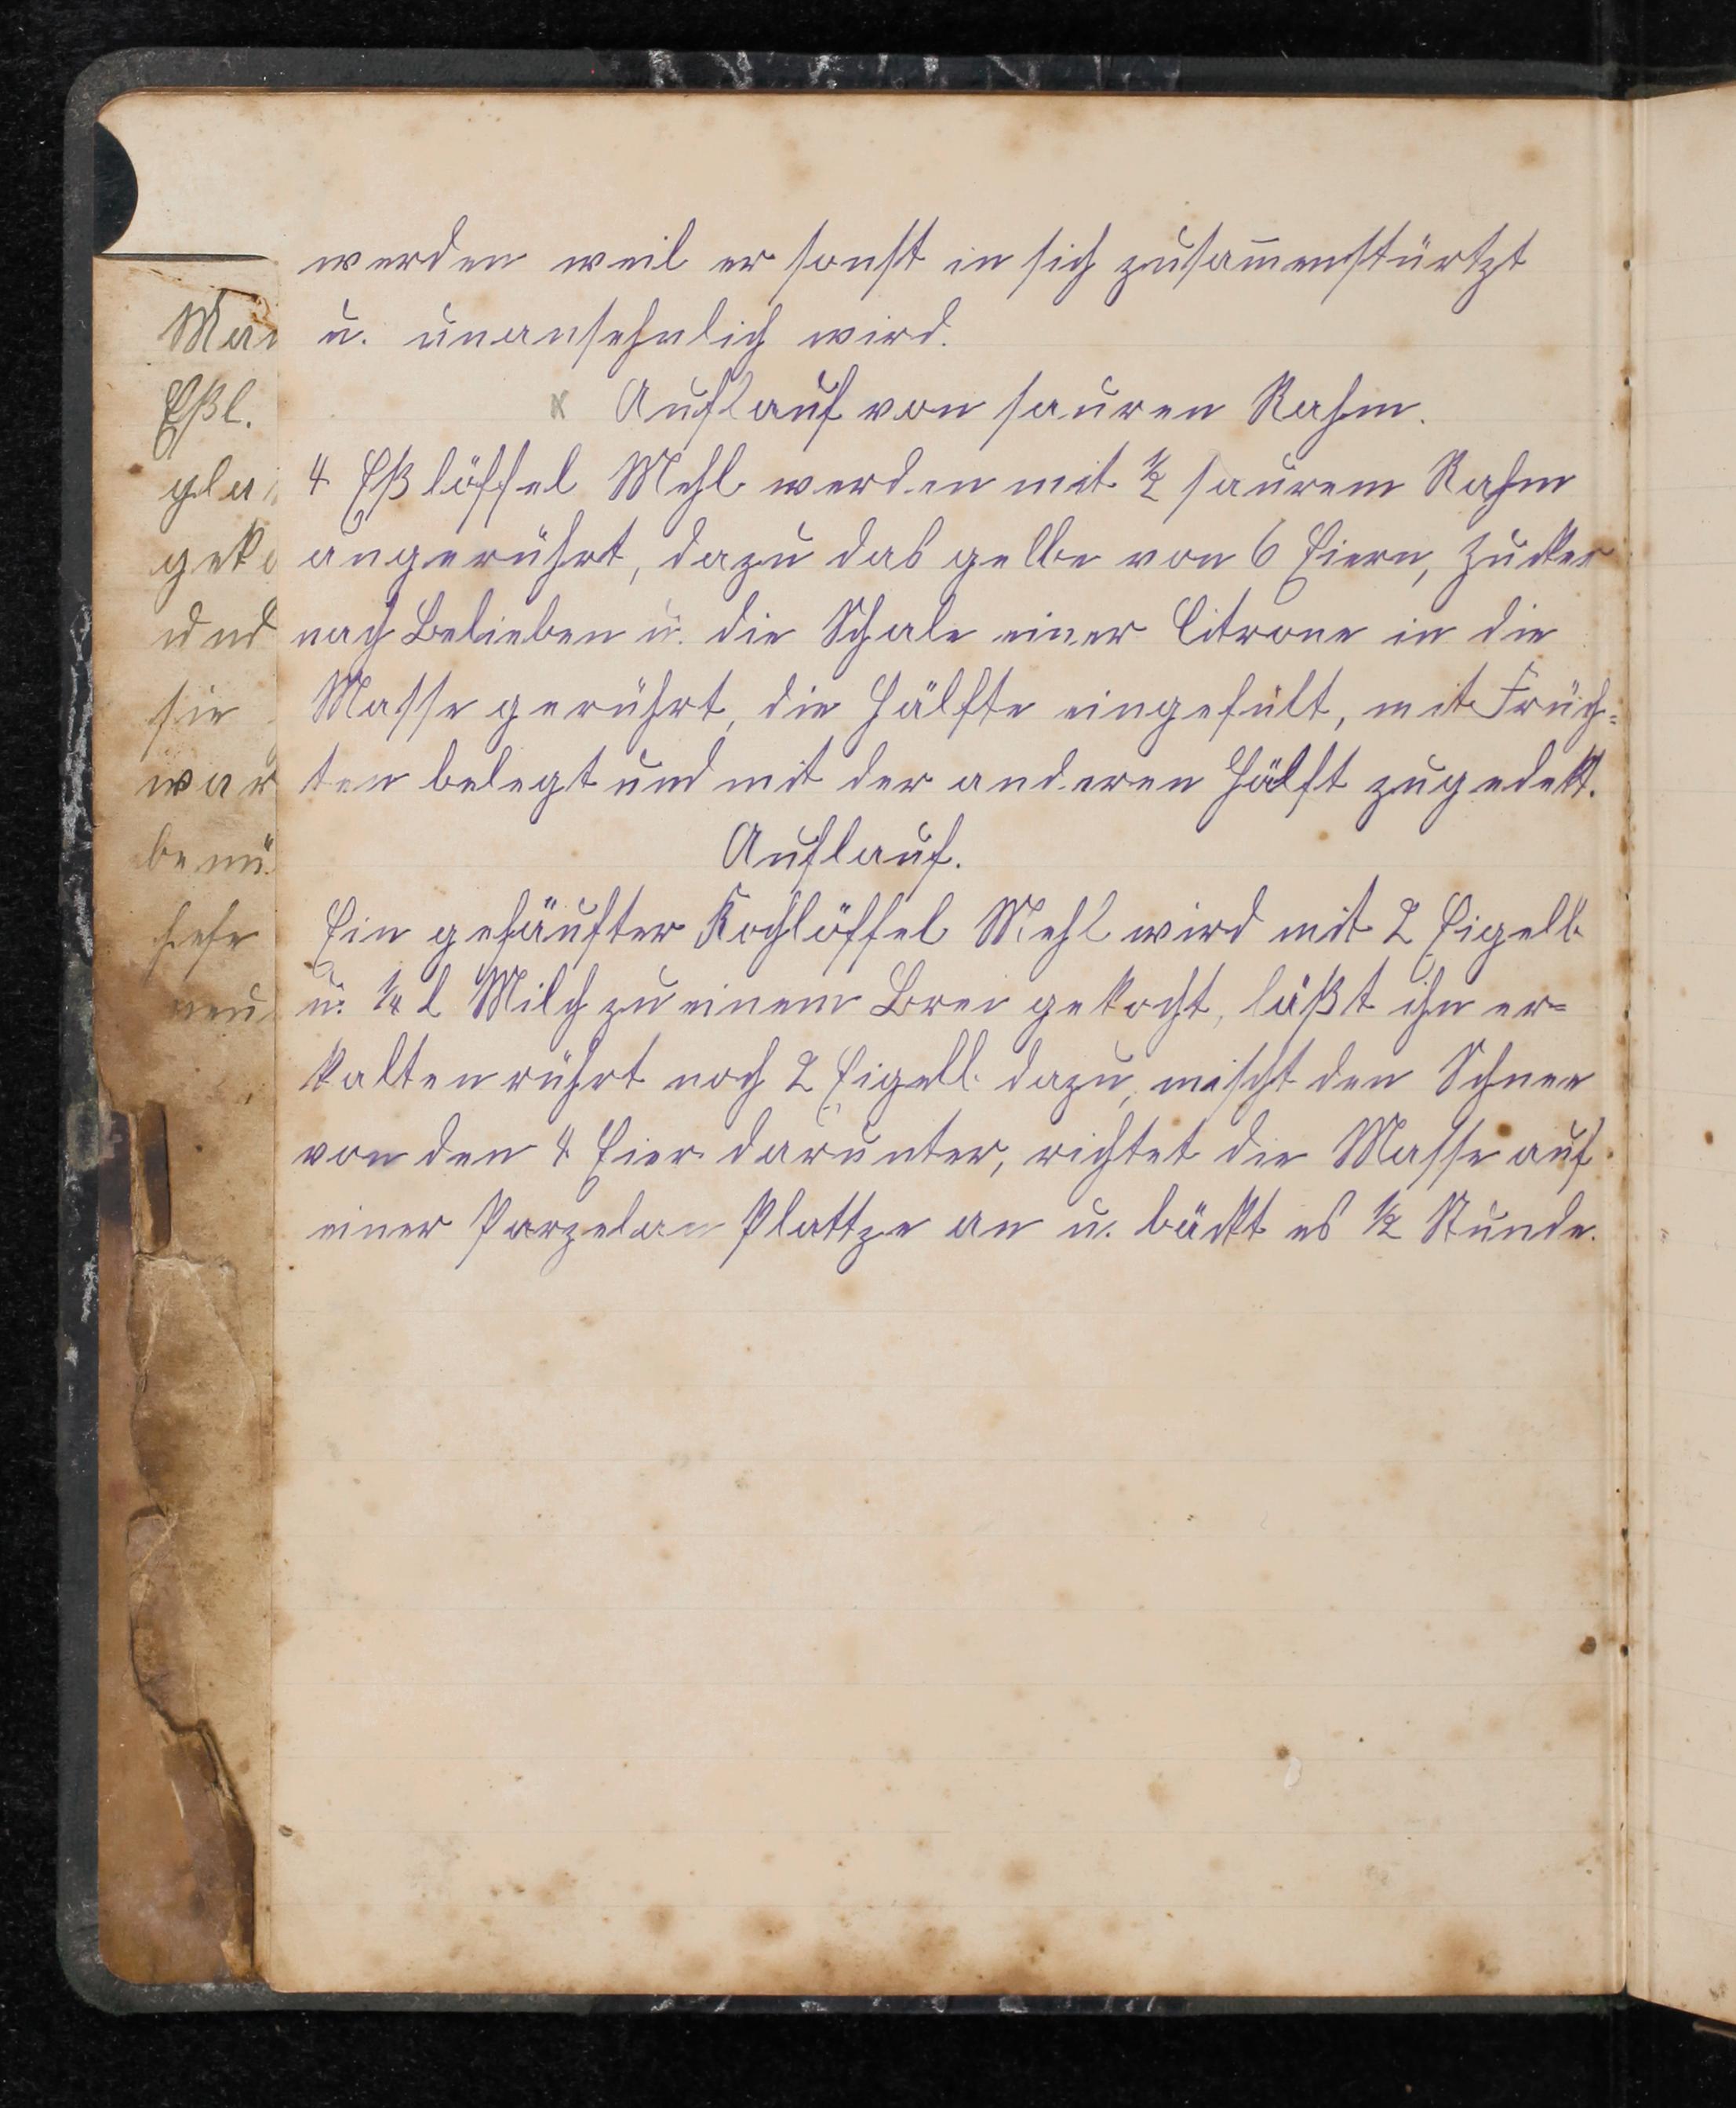 werden weil er sonst in sich zusam̅enstürtzt
u. unansehnlich wird.
x Auflauf von sauren Rahm.
4 Eßlöffel Mehl werden mit ½ saurem Rahm
angerührt, dazu das gelbe von 6 Eiern, Zucker
nach Belieben u. die Schale einer Citrone in die
Masse gerührt, die Hälfte eingefült, mit Früch=
ten belegt und mit der anderen Hälft zugedekt.
Auflauf.
Ein gehäufter Kochlöffel Mehl wird mit 2 Eigelb
u. ¼ l Milch zu einem Brei gekocht, läßt ihn er=
kalten rührt noch 2 Eigelb dazu, mischt den Schnee
von den 4 Eier darunter, richtet die Masse auf
einer Porzelan Plattze an u. bäckt es ½ Stunde.
Eßl.
und
sie